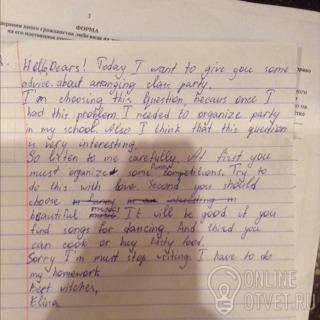 3
ФОРМА
Hello Dears! Today I want to give you some
advice about aranging class party.
I'm choosing this question becaus once I
had this problem. I needed to organize party
in my school. Also I think that this question
is very interesting.
So listen to me carefully. At first you
must organize some funny competitions. Try to
do this with love. Second you should
choose
beautiful musics It will be good if you
find songs for dancing. And third you
can cook or buy tasty food.
Sorry I'm must stop writing I have to do
my homework
Best witches,
Elina
ONLINE
OTVET.RU